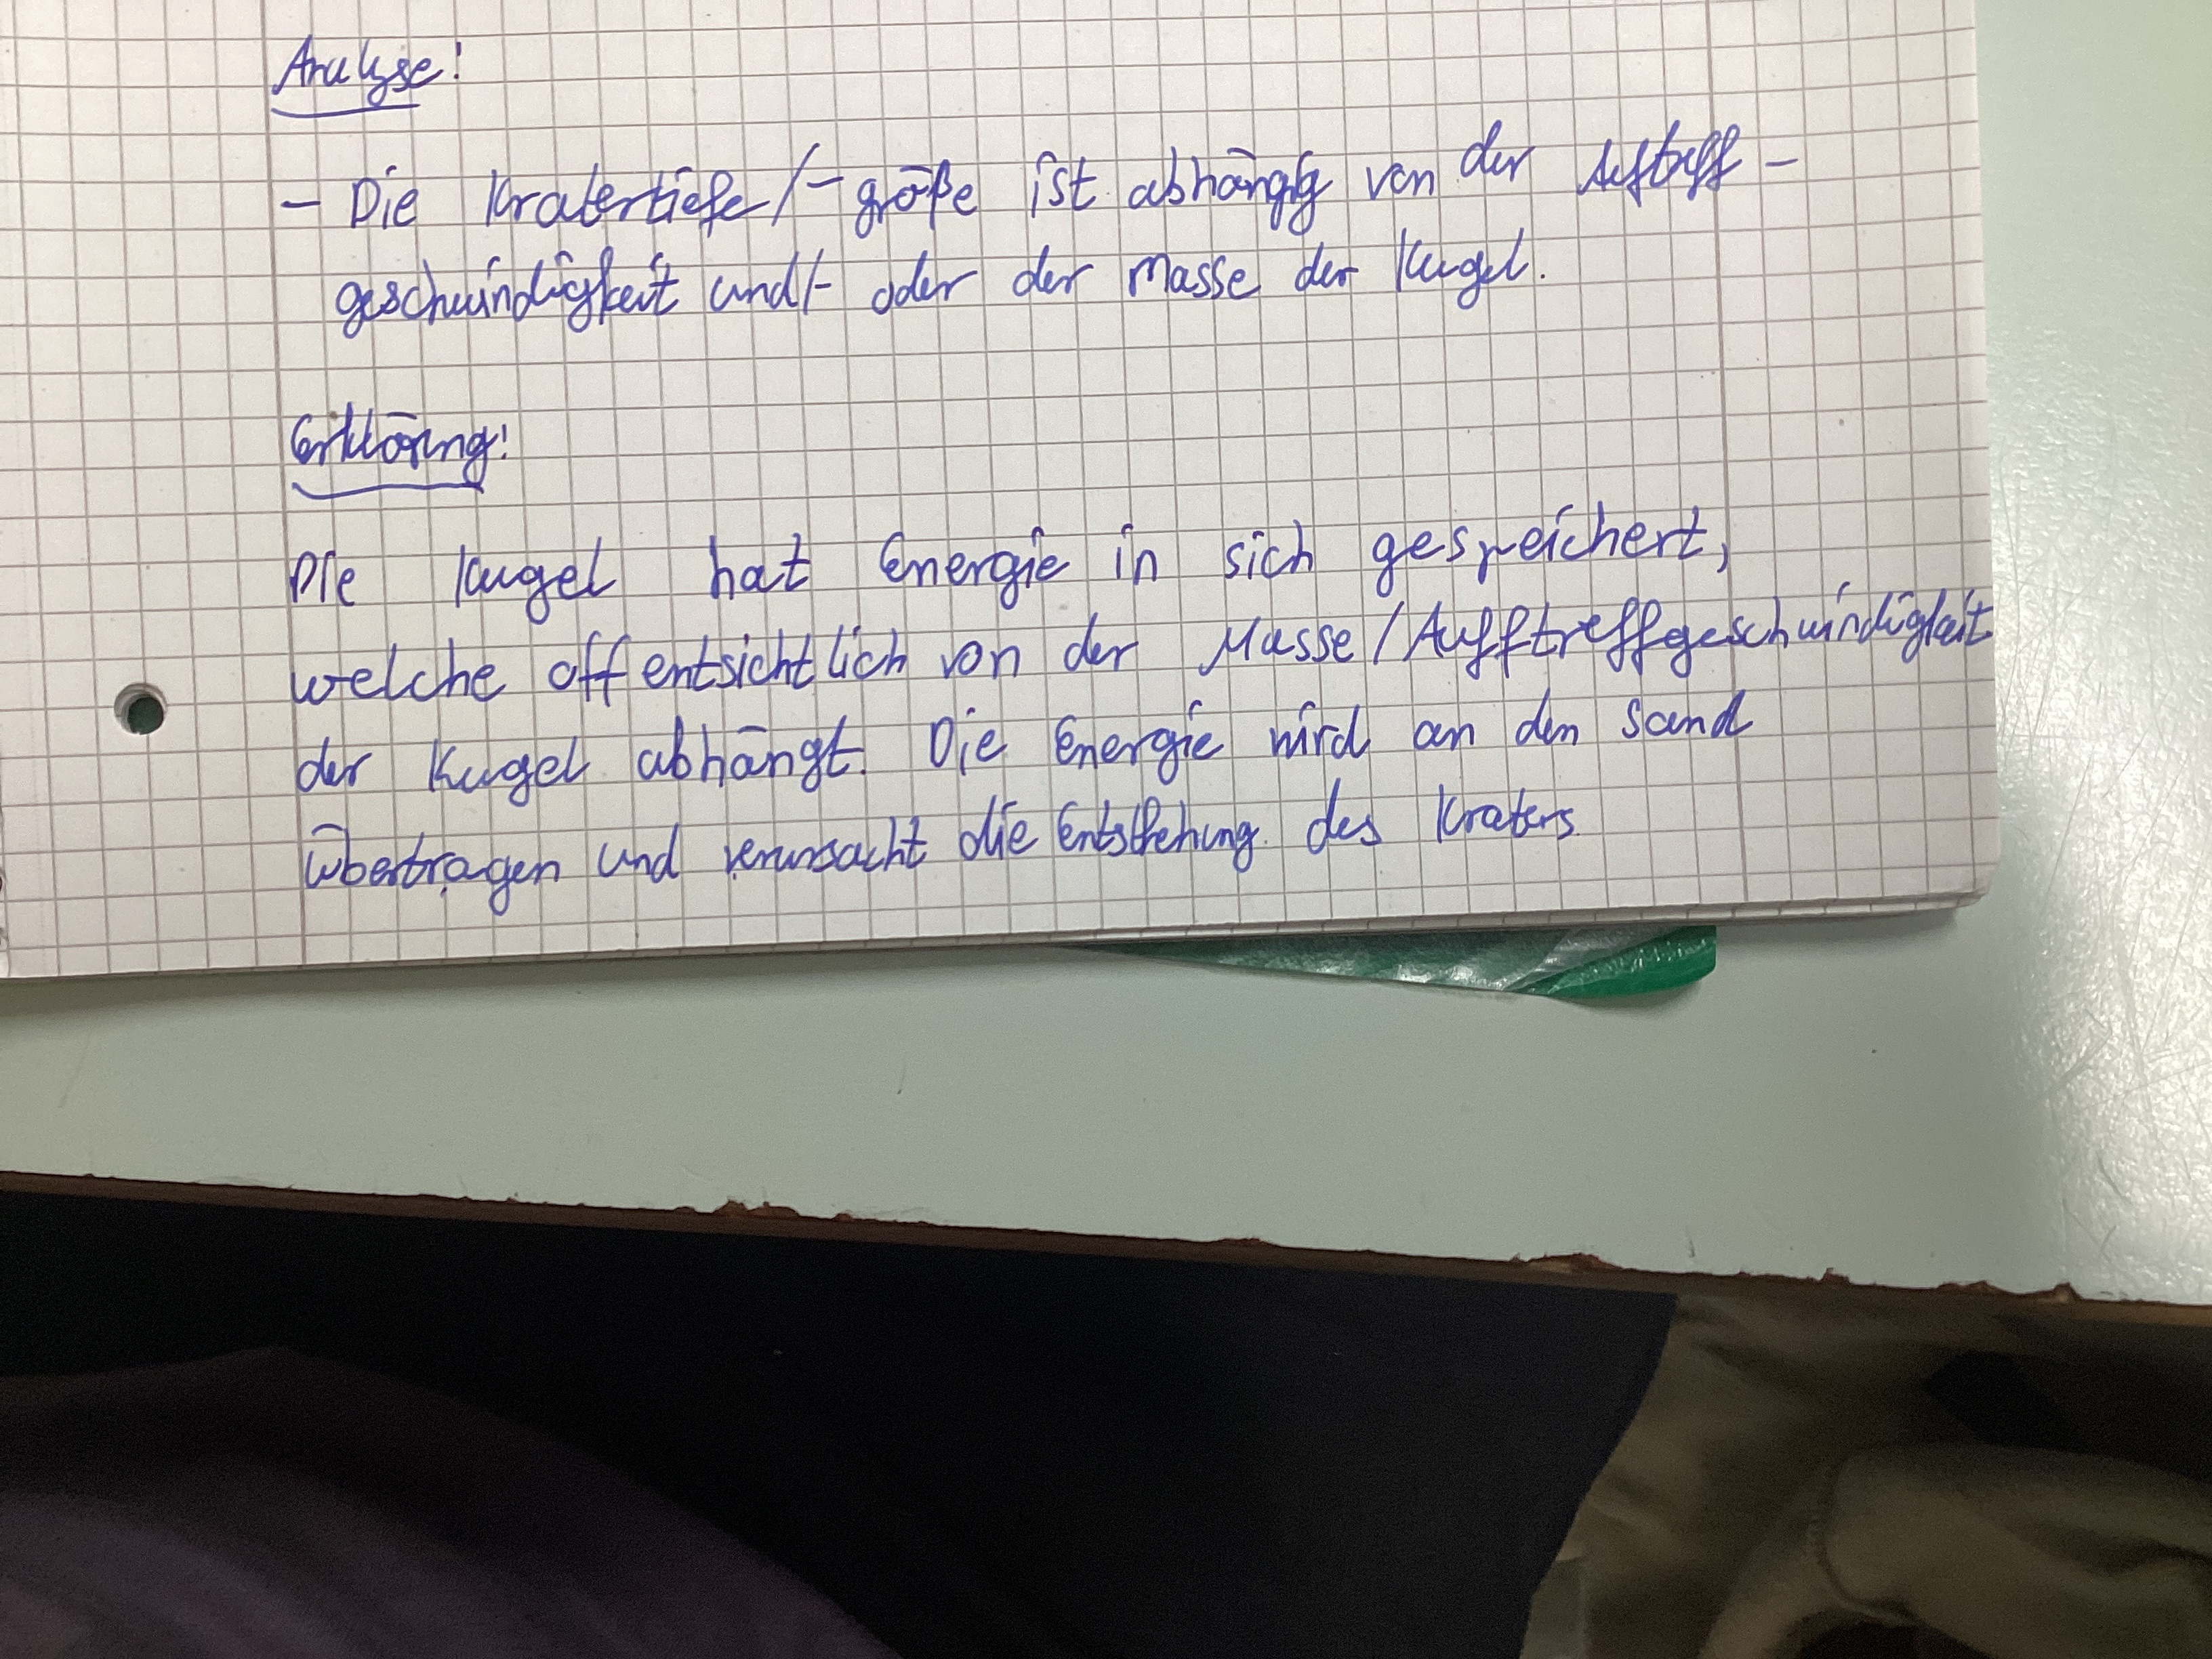 Analyse!
- Die Kratertiefe/-größe ist abhängig von der Auftreff-
geschwindigkeit und/- oder der Masse der Kugel.
Erklärung!
Die Kugel hat Energie in sich gespeichert,
welche offentsichtlich von der Masse/Aufftreffgeschwindigkeit
der Kugel abhängt. Die Energie wird an den Sand
übertragen und verursacht die Entstehung des Kraters